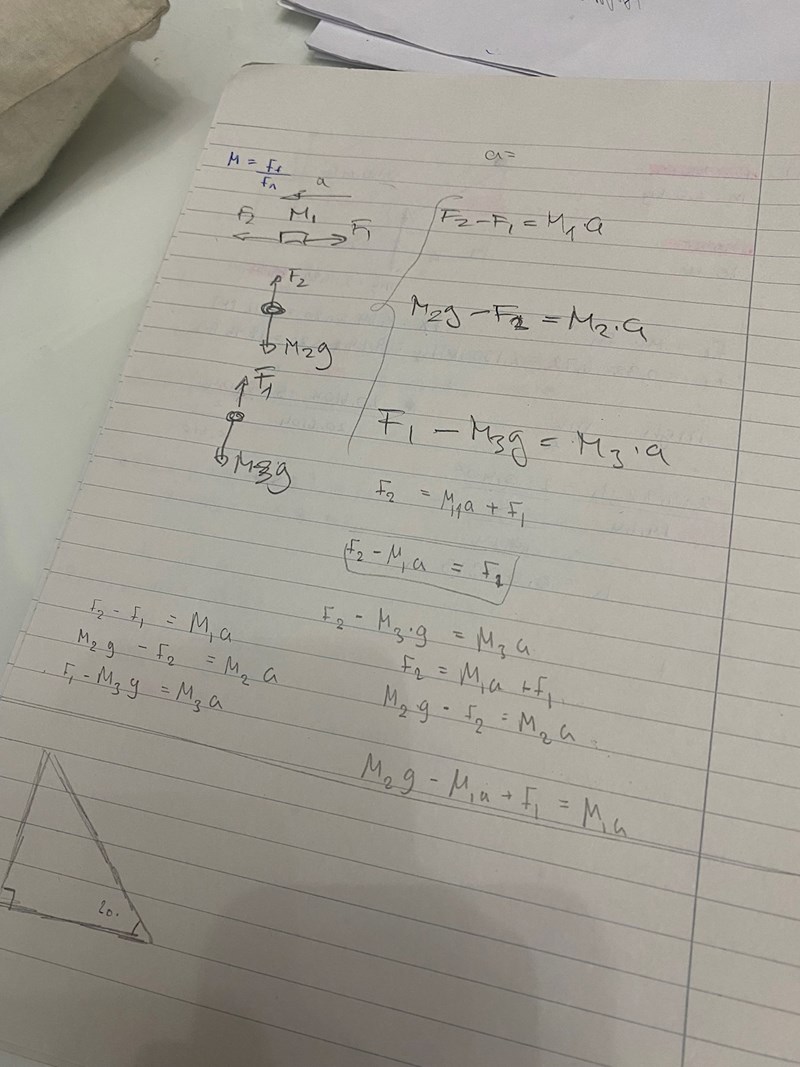 a=
M = F₁
F₁
a
F₂ M₁ F₁
F₂ - F₁ = M₁·a
F₂
M₂g
M₂g - F₂ = M₂·a
F₁
M₃g
F₁ - M₃g = M₃·a
F₂ = M₁a + F₁
F₂ - M₁a = F₁
F₂ - F₁ = M₁a
M₂g - F₂ = M₂a
F₁ - M₃g = M₃a
F₂ - M₃·g = M₃a
F₂ = M₁a + F₁
M₂g - F₂ = M₂a
M₂g - M₁a + F₁ = M₁a
20·